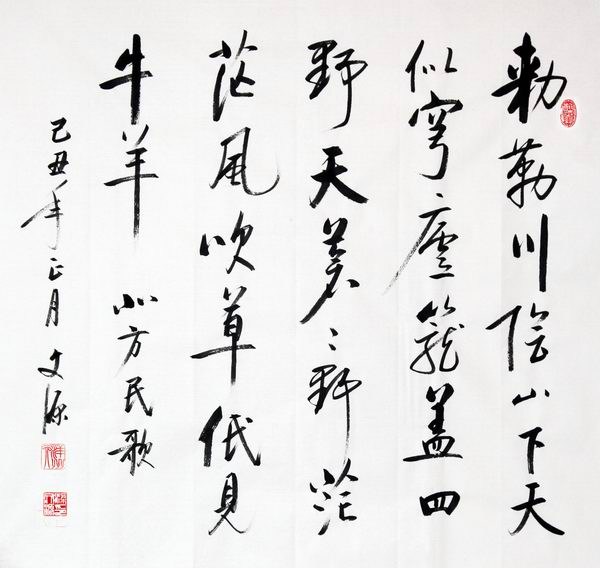 勅勒川陰山下天
似穹廬籠盖四
野天蒼々野茫
茫風吹草低見
牛羊 北方民歌
己丑年正月 文源